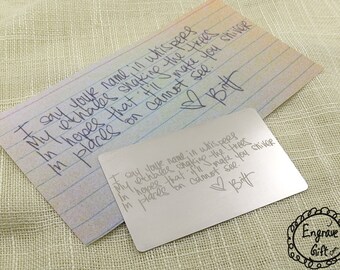 I say your name in whispers
My exhales shaking the trees
In hopes that it'll make you shiver
In places on cannot see
♡ Britt
I say your name in whispers
My exhales shaking the trees
In hopes that it'll make you shiver
In places on cannot see
♡ Britt
Engrave
Gift of